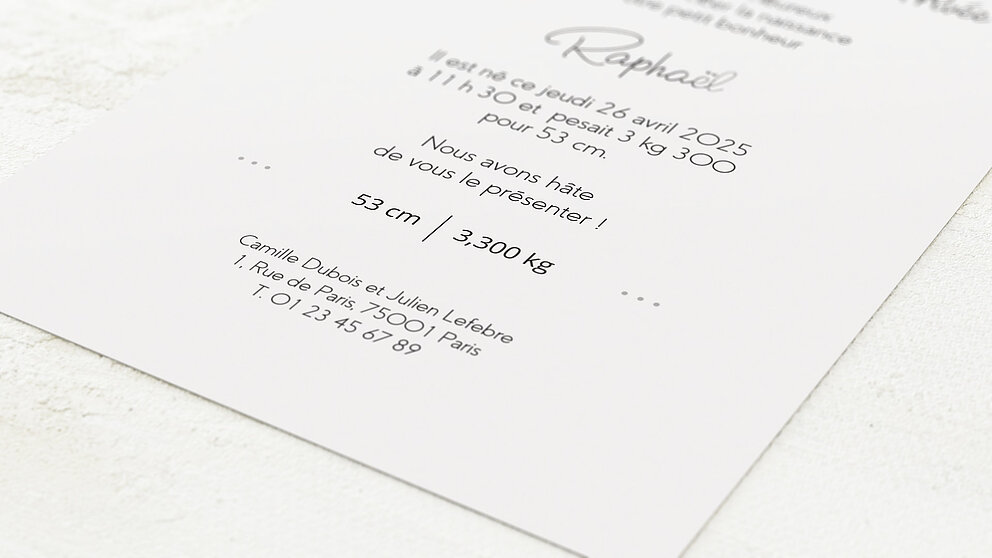 la naissance
petit bonheur
Raphaël
Il est né ce jeudi 26 avril 2025
à 11 h 30 et pesait 3 kg 300
pour 53 cm.
Nous avons hâte
de vous le présenter !
53 cm | 3,300 kg
Camille Dubois et Julien Lefebre
1, Rue de Paris, 75001 Paris
T. 01 23 45 67 89